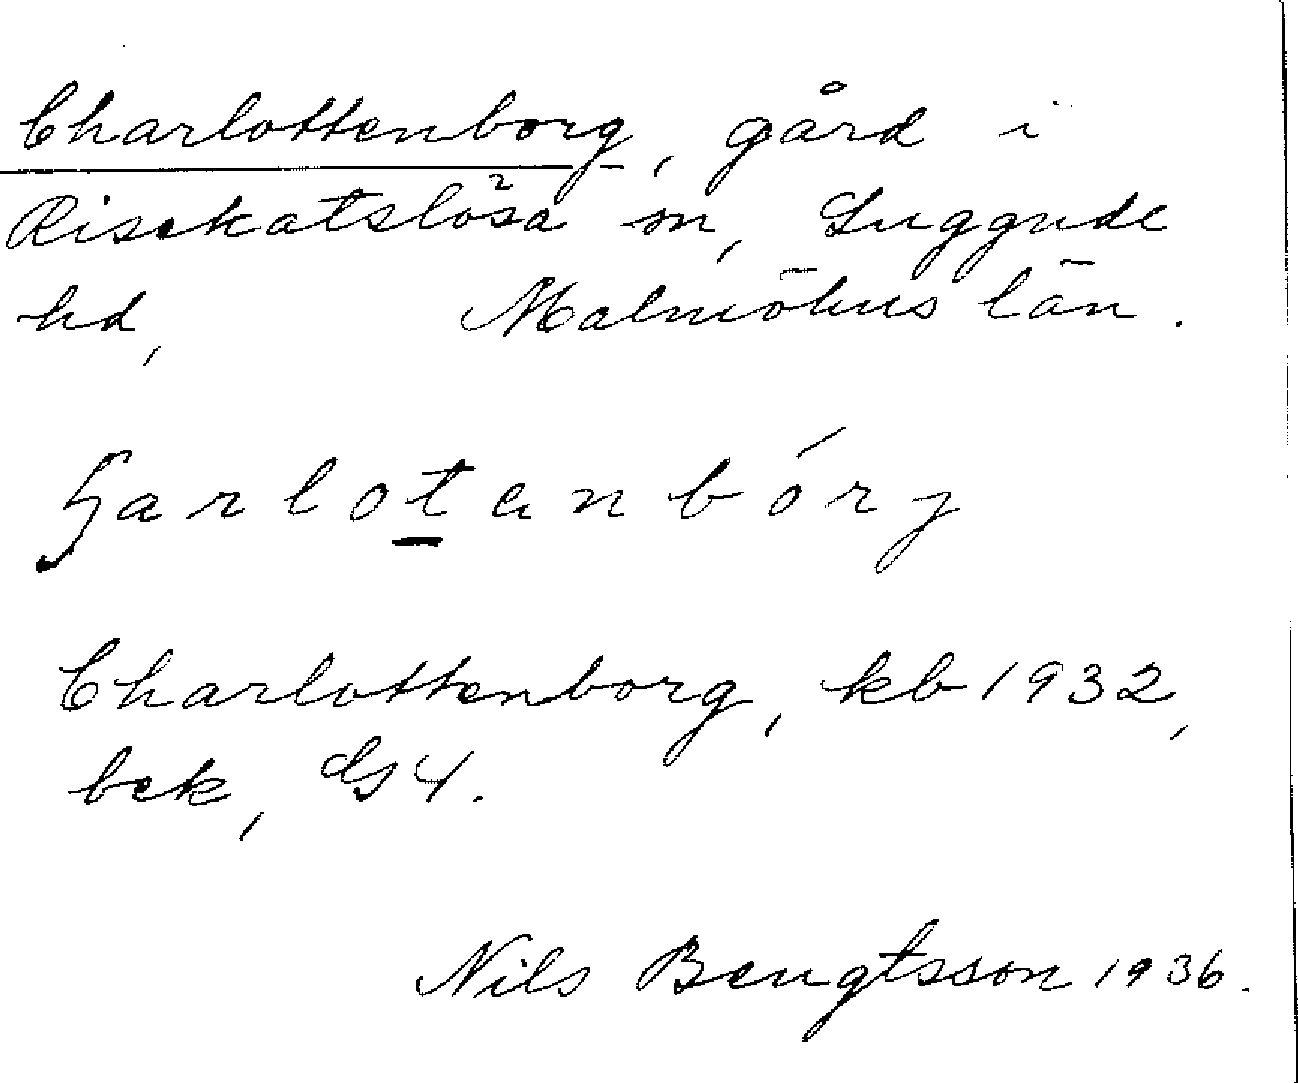 Charlottenborg, gård i
Risekatslösa sn, Luggude
hd, Malmöhus län.
ʃarlotanbórj
Charlottenborg, kb 1932,
bek, GS 4.
Nils Bengtsson 1936.